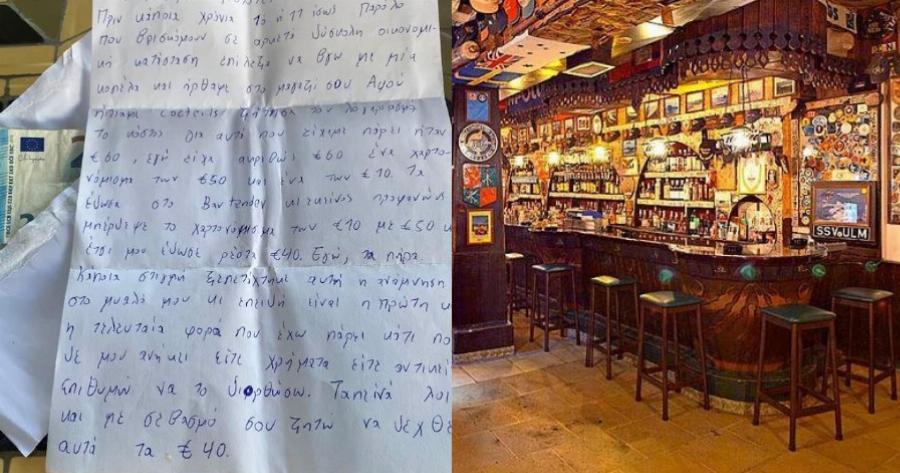 Πριν κάποια χρόνια 10 ή 11 ίσως. Παρόλο
που βρισκόμουν σε αρκετά δύσκολη οικονομι-
κή κατάσταση επέλεξα να βγω με μία
κοπέλα και ήρθαμε στο μαγαζί σου. Αφού
ήπιαμε cocktails ζήτησα τον λογαριασμό
Το κόστος για αυτά που είχαμε πάρει ήταν
€60, εγώ είχα ακριβώς €60 ένα χαρτο-
νόμισμα των €50 και ένα των €10. Τα
έδωσα στο Bartender κι εκείνος προφανώς
μπέρδεψε το χαρτονόμισμα των €10 με €50 κ
έτσι μου έδωσε ρέστα €40. Εγώ, τα πήρα.
Κάποια στιγμή ξεπετάχτηκε αυτή η ανάμνηση
στο μυαλό μου κι επειδή είναι η πρώτη κ
η τελευταία φορά που έχω πάρει κάτι πο
δε μου ανήκει είτε χρήματα είτε αντικεί
επιθυμώ να το διορθώσω. Ταπεινά λοι
και με σεβασμό σου ζητώ να δεχθε
αυτά τα €40.
SSV ULM